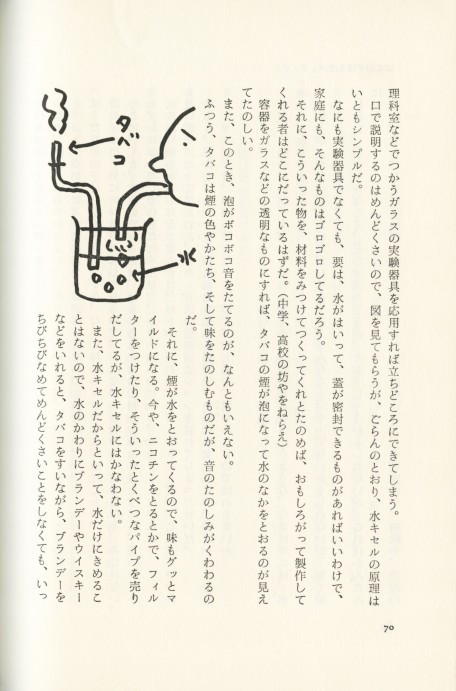 理科室などでつかうガラスの実験器具を応用すれば立ちどころにできてしまう。
口で説明するのはめんどくさいので、図を見てもらうが、ごらんのとおり、水キセルの原理は
いともシンプルだ。
なにも実験器具でなくても、要は、水がはいって、蓋が密封できるものがあればいいわけで、
家庭にも、そんなものはゴロゴロしてるだろう。
それに、こういった物を、材料をみつけてつくってくれとたのめば、おもしろがって製作して
くれる者はどこにだっているはずだ。(中学、高校の坊やをねらえ)
容器をガラスなどの透明なものにすれば、タバコの煙が泡になって水のなかをとおるのが見え
てたのしい。
また、このとき、泡がボコボコ音をたてるのが、なんともいえない。
ふつう、タバコは煙の色やかたち、そして味をたのしむものだが、音のたのしみがくわわるの
だ。
それに、煙が水をとおってくるので、味もグッとマ
イルドになる。今や、ニコチンをとるとかで、フィル
ターをつけたり、そういったとくべつなパイプを売り
だしてるが、水キセルにはかなわない。
また、水キセルだからといって、水だけにきめるこ
とはないので、水のかわりにブランデーやウイスキー
などをいれると、タバコをすいながら、ブランデーを
ちびちびなめてめんどくさいことをしなくても、いっ
タバコ
水
70